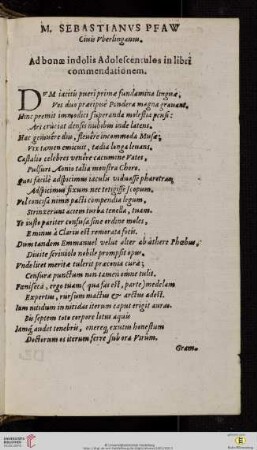 M. SEBASTIANVS PFAW
Civis Vberlinganus.
Ad bonæ indolis Adolescentulos in libri
commendationem.
DVM iacitis pueri primæ fundamina linguæ,
Vos duo præcipuè Pondera magna gravant.
Hinc premit immodici superanda molestia pensi:
Ars cruciat densis nubibus inde latens.
Hæc gemuere diu, flevêre incommoda Musæ;
Vix tamen emicuit, tædia longa levans.
Castalio celebres venêre cacumine Vates,
Pulsuri Aonio talia monstra Choro.
Quasi facilè adspicimus iaculis viduasse pharetras,
Adspicimus fixum nec tetigisse scopum.
Vel concisa nimis pacti compendia legum,
Strinxerunt aciem turba tenella, tuam.
Te iusto pariter confusa sine ordine moles,
Eminus à Clariâ est remorata fociis.
Dum tandem Emmanuel velut alter ab æthere Phœbus,
Divite scriniolo nobile prompsit opus.
Unde licet meritæ tulerit præconia curæ;
Censuræ punctum non tamen omne tulit.
Fœniseca, ergo tuam (qua fas est, parte) medelam
Expertus, rursum mactus & arctus adest.
Iam nitidum in nitidas iterum caput erigit auras.
Bis septem toto corpore lotus aquis
Iamq; audet tenebris, onereq; exutus honestum
Doctorum os iterum ferre sub ora Virûm.
Gram.